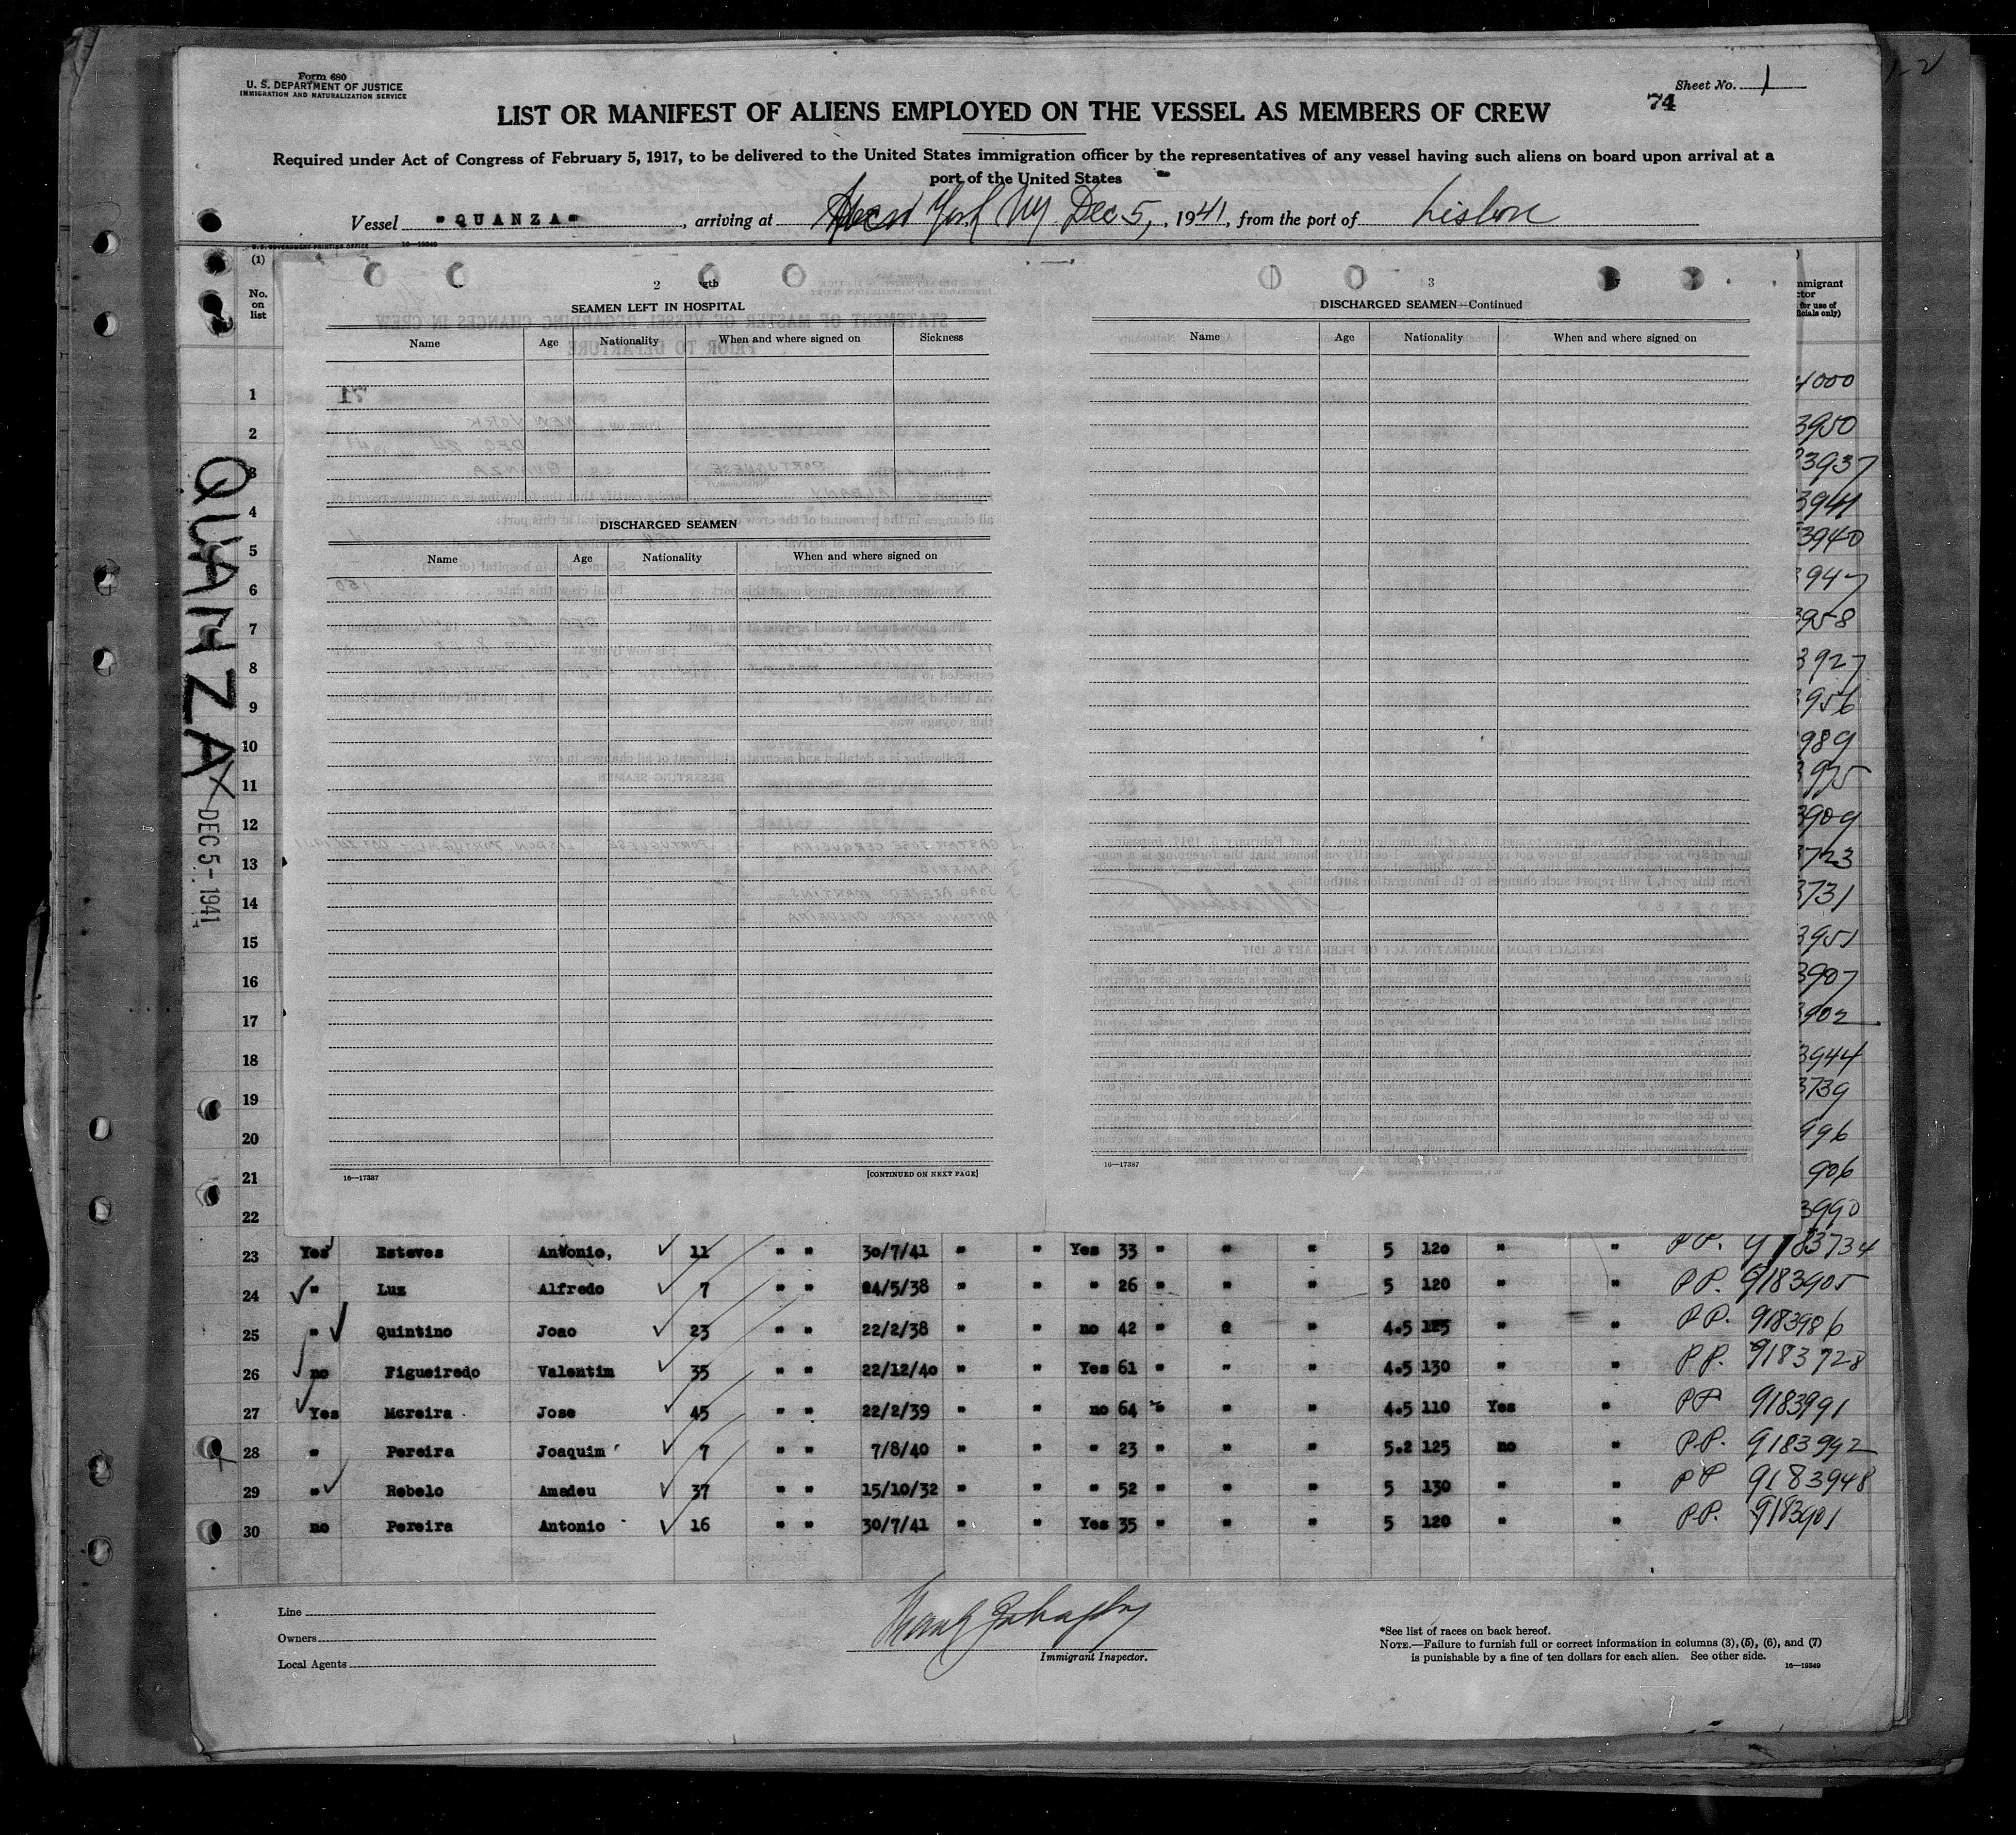 Form 680
U. S. DEPARTMENT OF JUSTICE
IMMIGRATION AND NATURALIZATION SERVICE
Sheet No. 1
74
1-2
LIST OR MANIFEST OF ALIENS EMPLOYED ON THE VESSEL AS MEMBERS OF CREW
Required under Act of Congress of February 5, 1917, to be delivered to the United States immigration officer by the representatives of any vessel having such aliens on board upon arrival at a
port of the United States
Vessel "QUANZA", arriving at New York NY Dec 5, 1941, from the port of Lisbon
U. S. GOVERNMENT PRINTING OFFICE 16—19349
(1)
No. on list
2
SEAMEN LEFT IN HOSPITAL
Name Age Nationality When and where signed on Sickness
DISCHARGED SEAMEN
Name Age Nationality When and where signed on
16—17387 [CONTINUED ON NEXT PAGE]
3
DISCHARGED SEAMEN—Continued
Name Age Nationality When and where signed on
16—17387
QUANZA
X DEC 5 - 1941
1 4000
2 3950
3 3937
4 3941
5 3940
6 3947
7 3958
8 3927
9 3956
10 989
11 975
12 3909
13 3723
14 3731
15 3951
16 3907
17 3902
18 3944
19 3739
20 996
21 906
22 3990
23 Yes Esteves Antonio, 11 " " 30/7/41 " " Yes 33 " " " 5 120 " " P.P. 9183734
24 " Luz Alfredo 7 " " 24/5/38 " " " 26 " " " 5 120 " " P.P. 9183905
25 " Quintino Joao 23 " " 22/2/38 " " no 42 " " " 4.5 125 " " P.P. 9183986
26 no Figueiredo Valentim 35 " " 22/12/40 " " Yes 61 " " " 4.5 130 " " P.P. 9183728
27 Yes Moreira Jose 45 " " 22/2/39 " " no 64 " " " 4.5 110 Yes " PP 9183991
28 " Pereira Joaquim 7 " " 7/8/40 " " " 23 " " " 5.2 125 no " P.P. 9183992
29 " Rebelo Amadeu 37 " " 15/10/32 " " " 52 " " " 5 130 " " PP 9183948
30 no Pereira Antonio 16 " " 30/7/41 " " Yes 35 " " " 5 120 " " P.P. 9183901
Line
Owners
Local Agents
Immigrant Inspector.
*See list of races on back hereof.
NOTE.—Failure to furnish full or correct information in columns (3), (5), (6), and (7)
is punishable by a fine of ten dollars for each alien. See other side.
16—19349